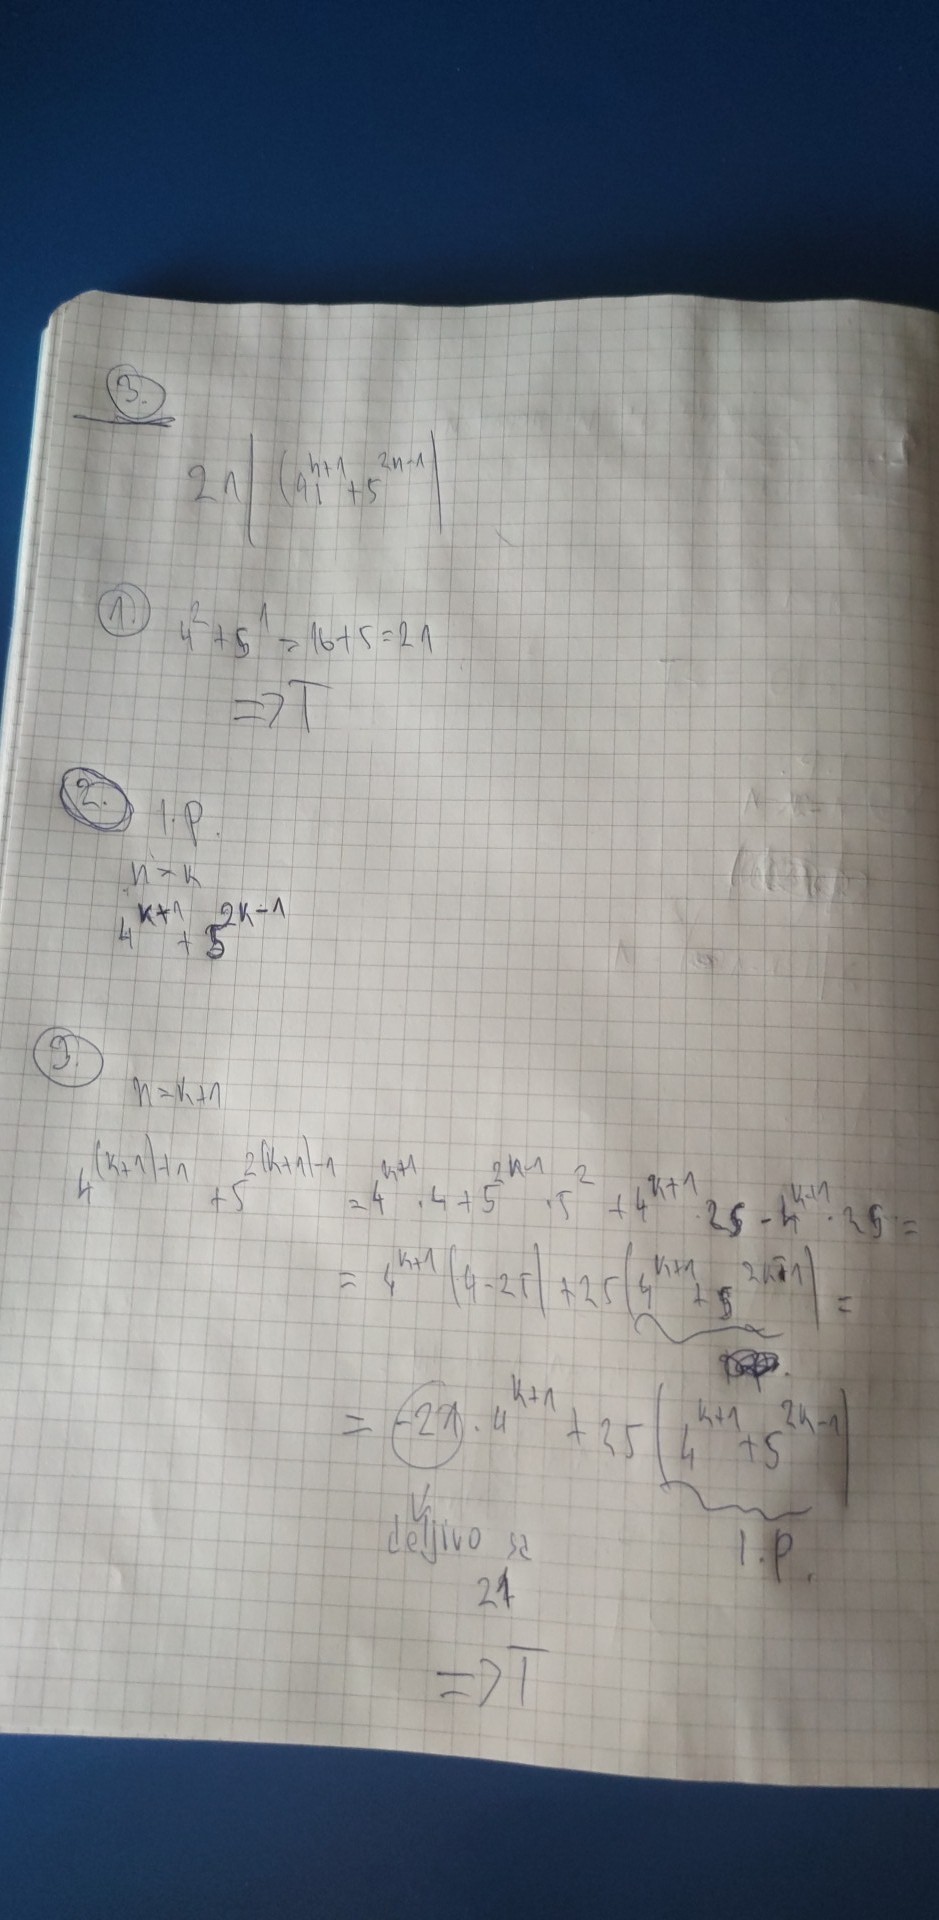 3.
21 | (4^{n+1} + 5^{2n-1})
1. 4^2 + 5^1 = 16 + 5 = 21
=> T
2. I.P.
n = k
4^{k+1} + 5^{2k-1}
3.
n = k+1
4^{(k+1)+1} + 5^{2(k+1)-1} = 4^{k+1} · 4 + 5^{2k-1} · 5^2 + 4^{k+1} · 25 - 4^{k+1} · 25 =
= 4^{k+1} (4-25) + 25 (4^{k+1} + 5^{2k-1}) =
= -21 · 4^{k+1} + 25 (4^{k+1} + 5^{2k-1})
deljivo sa I.P.
21
=> T